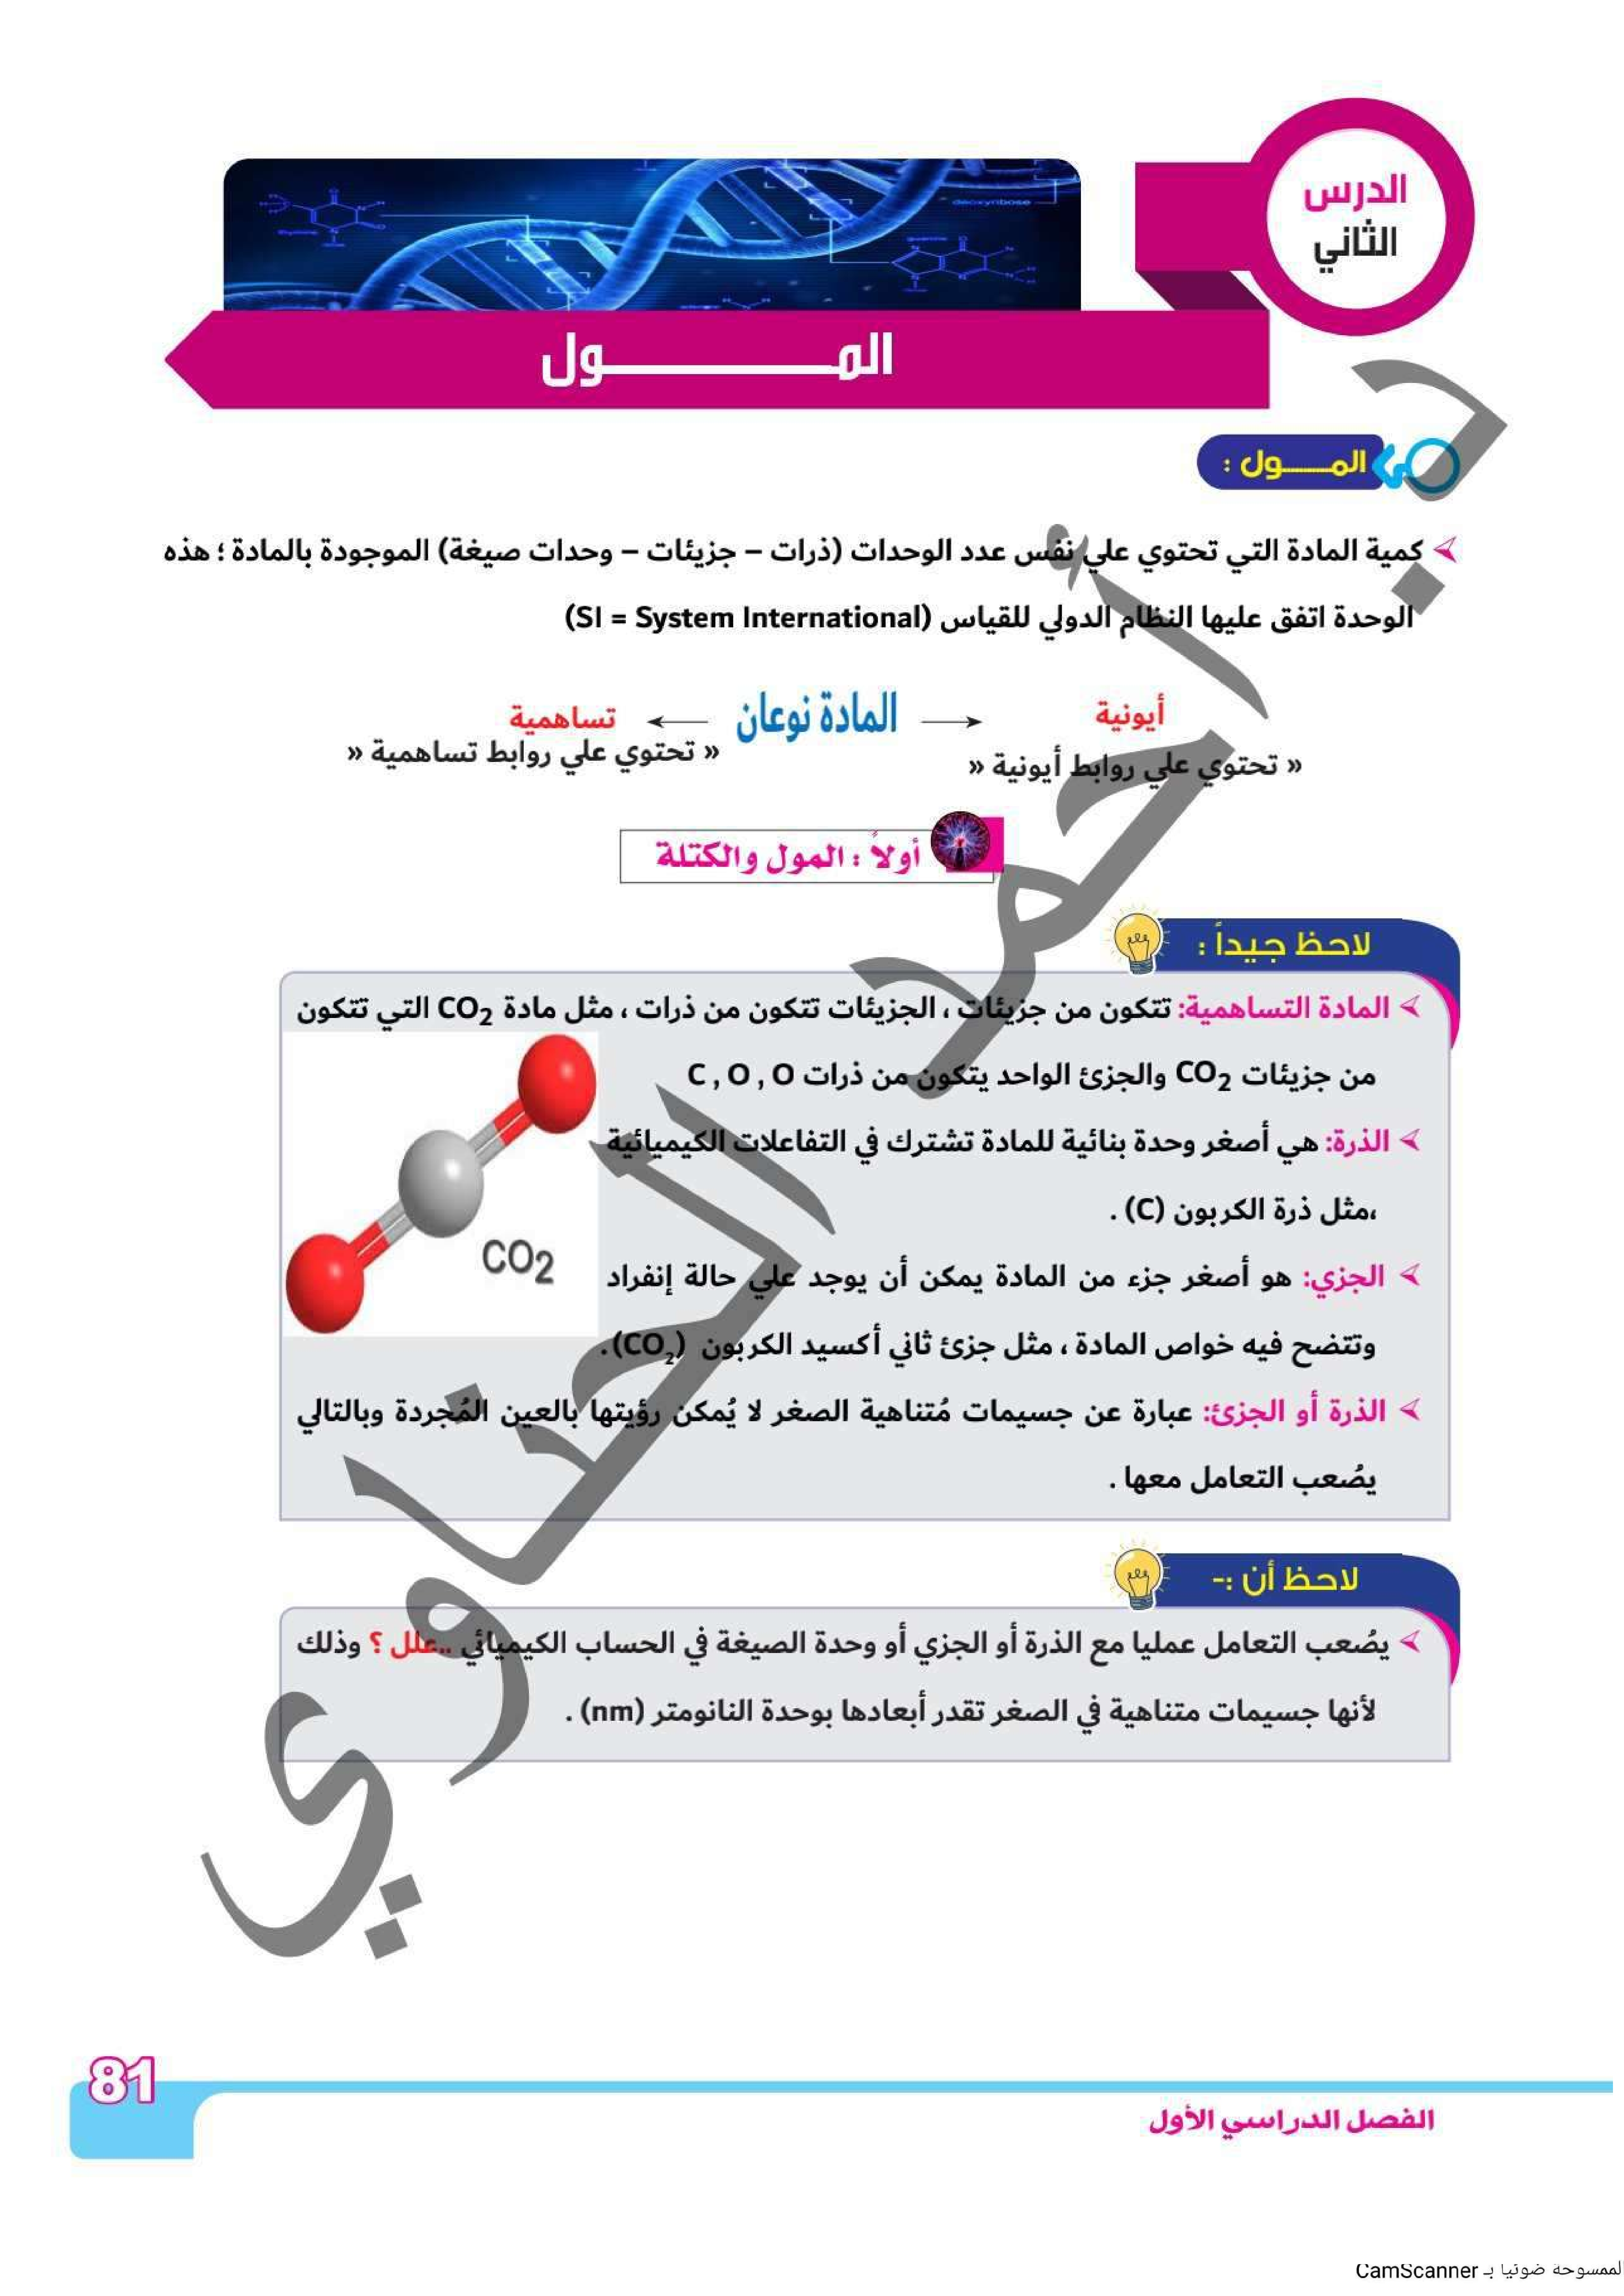 الدرس
الثاني
المـــــــول
المــــول :
كمية المادة التي تحتوي علي نفس عدد الوحدات (ذرات – جزيئات – وحدات صيغة) الموجودة بالمادة ؛ هذه
الوحدة اتفق عليها النظام الدولي للقياس (SI = System International)
المادة نوعان
أيونية
« تحتوي علي روابط أيونية »
تساهمية
« تحتوي علي روابط تساهمية »
أولاً : المول والكتلة
لاحظ جيداً :
المادة التساهمية: تتكون من جزيئات ، الجزيئات تتكون من ذرات ، مثل مادة CO2 التي تتكون
من جزيئات CO2 والجزئ الواحد يتكون من ذرات C , O , O
الذرة: هي أصغر وحدة بنائية للمادة تشترك في التفاعلات الكيميائية
،مثل ذرة الكربون (C) .
الجزي: هو أصغر جزء من المادة يمكن أن يوجد علي حالة إنفراد
وتتضح فيه خواص المادة ، مثل جزئ ثاني أكسيد الكربون (CO2).
CO2
الذرة أو الجزئ: عبارة عن جسيمات مُتناهية الصغر لا يُمكن رؤيتها بالعين المُجردة وبالتالي
يصُعب التعامل معها .
لاحظ أن :-
يصُعب التعامل عمليا مع الذرة أو الجزي أو وحدة الصيغة في الحساب الكيميائي ..علل ؟ وذلك
لأنها جسيمات متناهية في الصغر تقدر أبعادها بوحدة النانومتر (nm) .
د. أحمد الحناوي
81
الفصل الدراسي الأول
لممسوحة ضوئيا بـ CamScanner